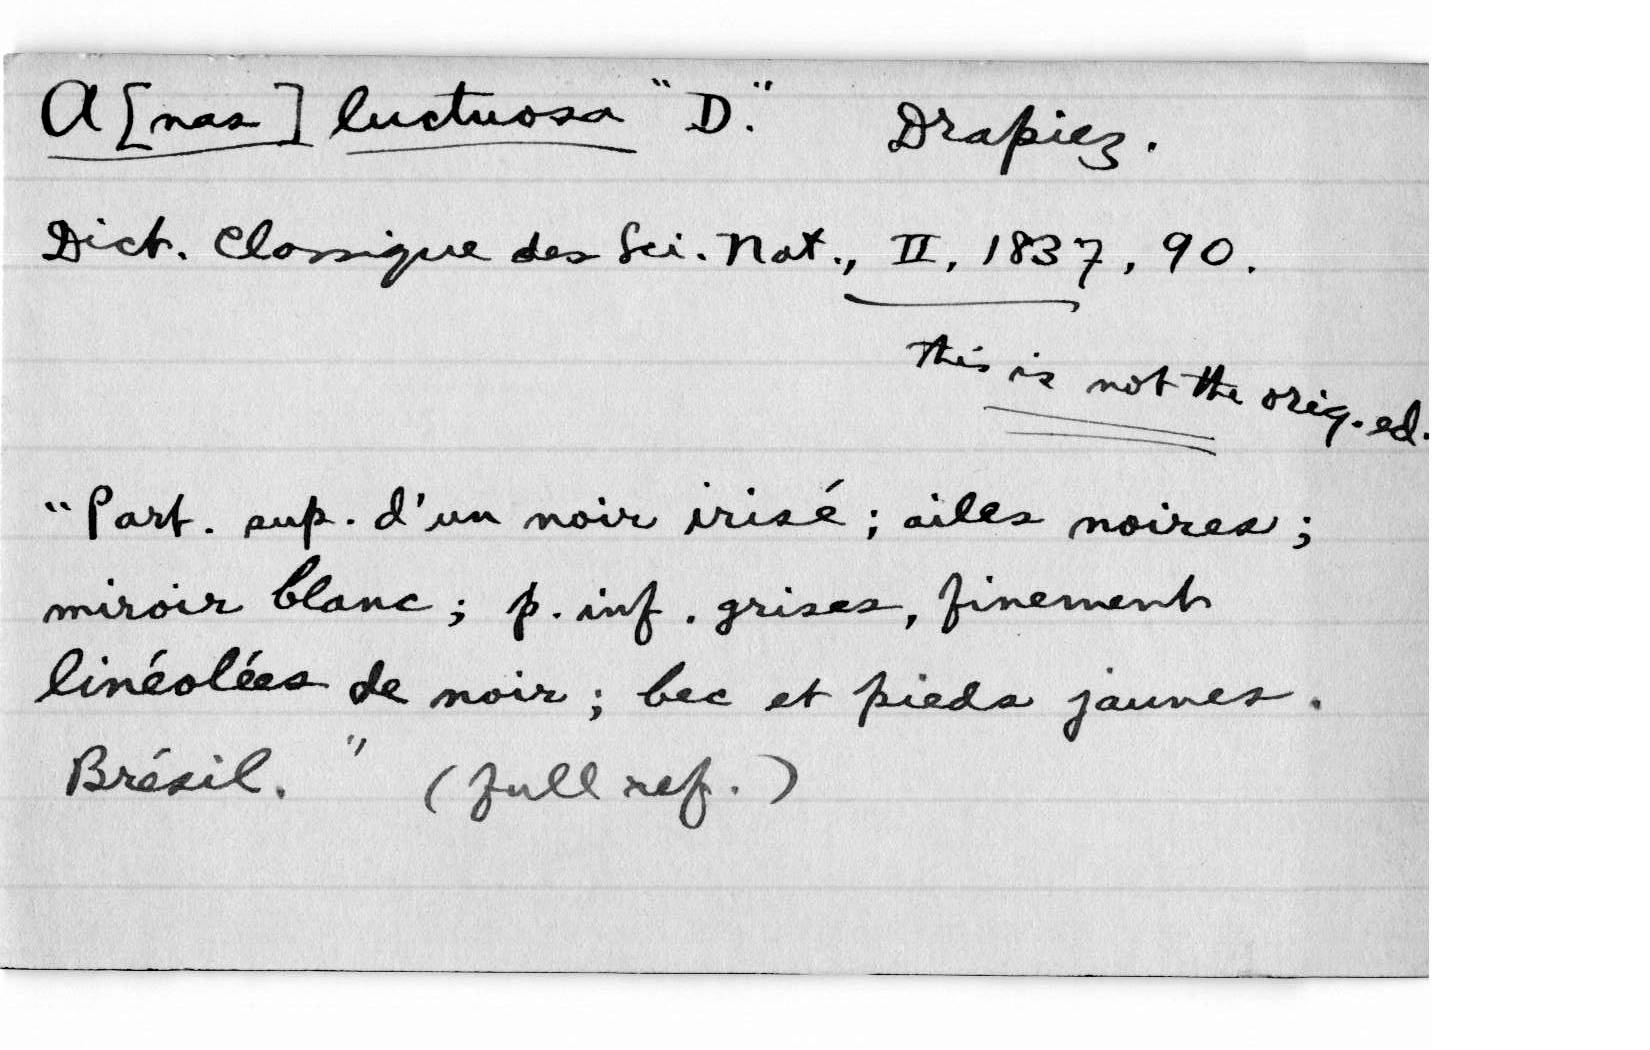 A[nas] luctuosa "D." Drapiez.
Dict. Classique des Sci. Nat., II, 1837, 90.
this is not the orig. ed.
"Part. sup. d'un noir irisé; ailes noires;
miroir blanc; p. inf. grises, finement
linéolées de noir; bec et pieds jaunes.
Brésil." (full ref.)